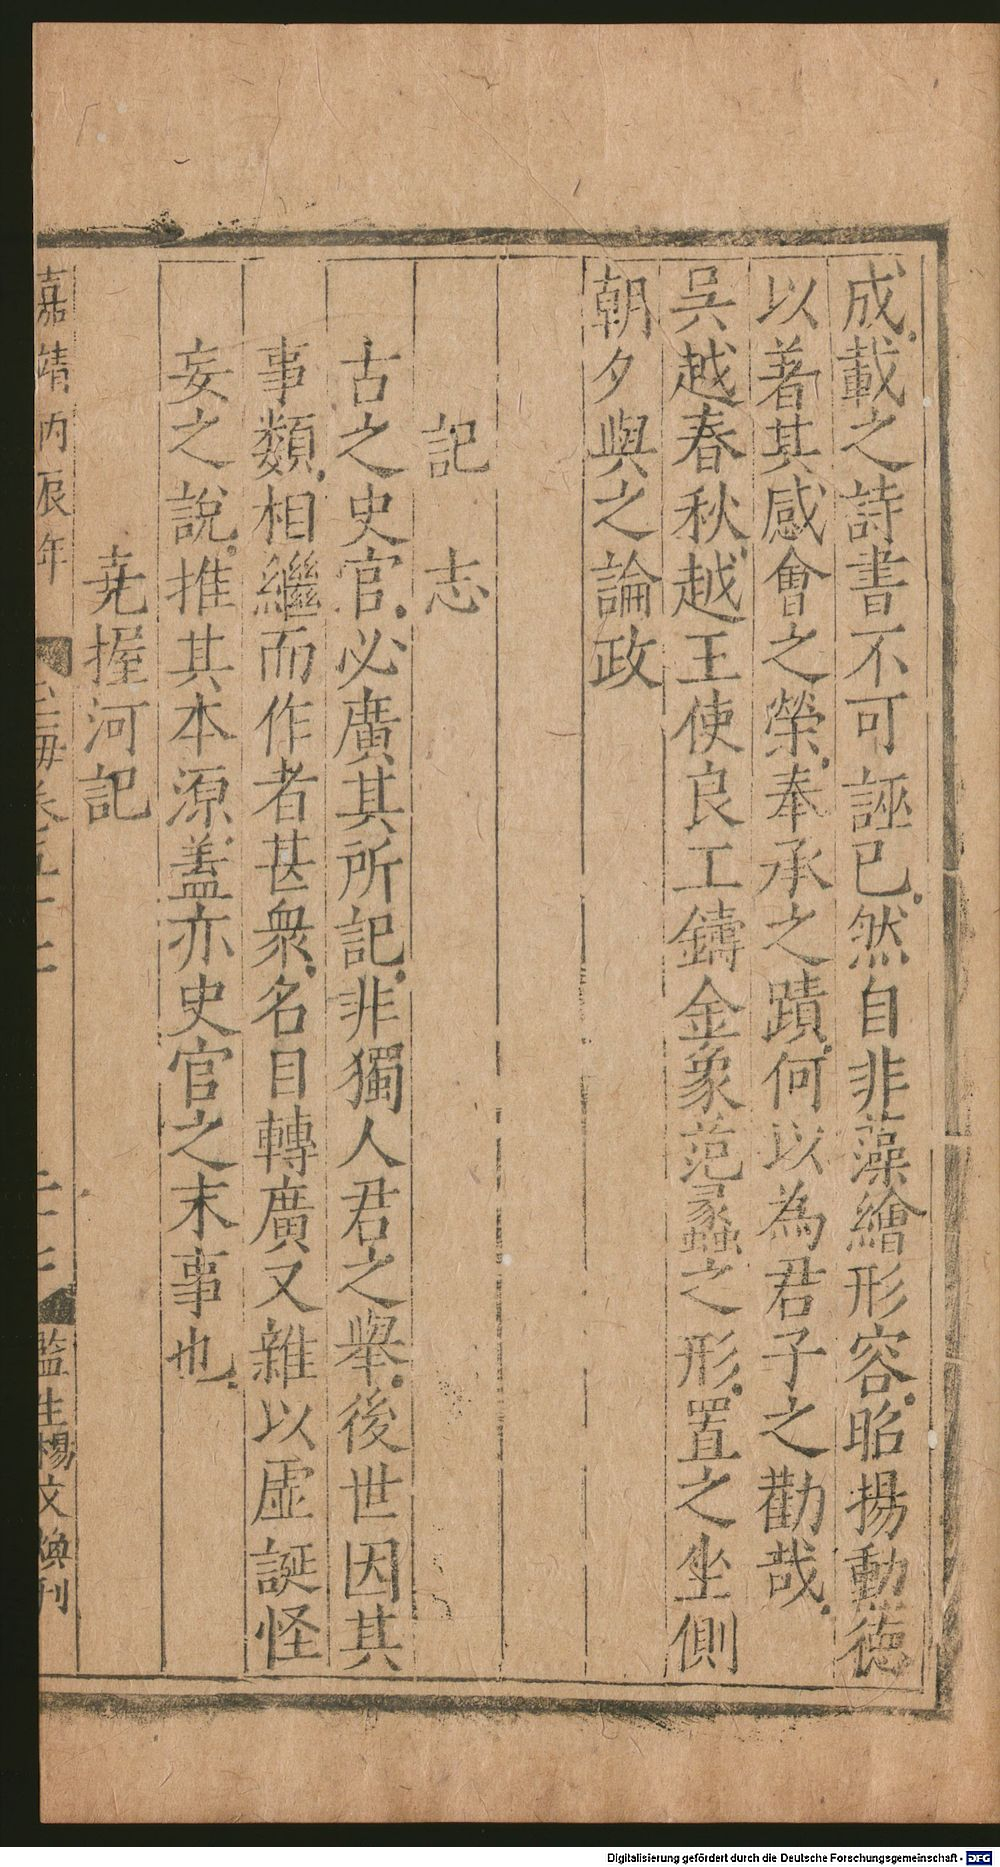 成載之詩書不可誣已然自非藻繪形容昭揚動德
以著其感會之榮奉承之蹟何以為君子之勸哉
吳越春秋越王使良工鑄金象范蠡之形置之坐側
朝夕與之論政
記志
古之史官必廣其所記非獨人君之舉後世因其
事類相繼而作者甚衆名目轉廣又雜以虛誕怪
妄之說推其本源蓋亦史官之末事也
堯握河記
嘉靖丙辰年
玉海卷五十七
監生楊文煥刊
Digitalisierung gefördert durch die Deutsche Forschungsgemeinschaft - DFG